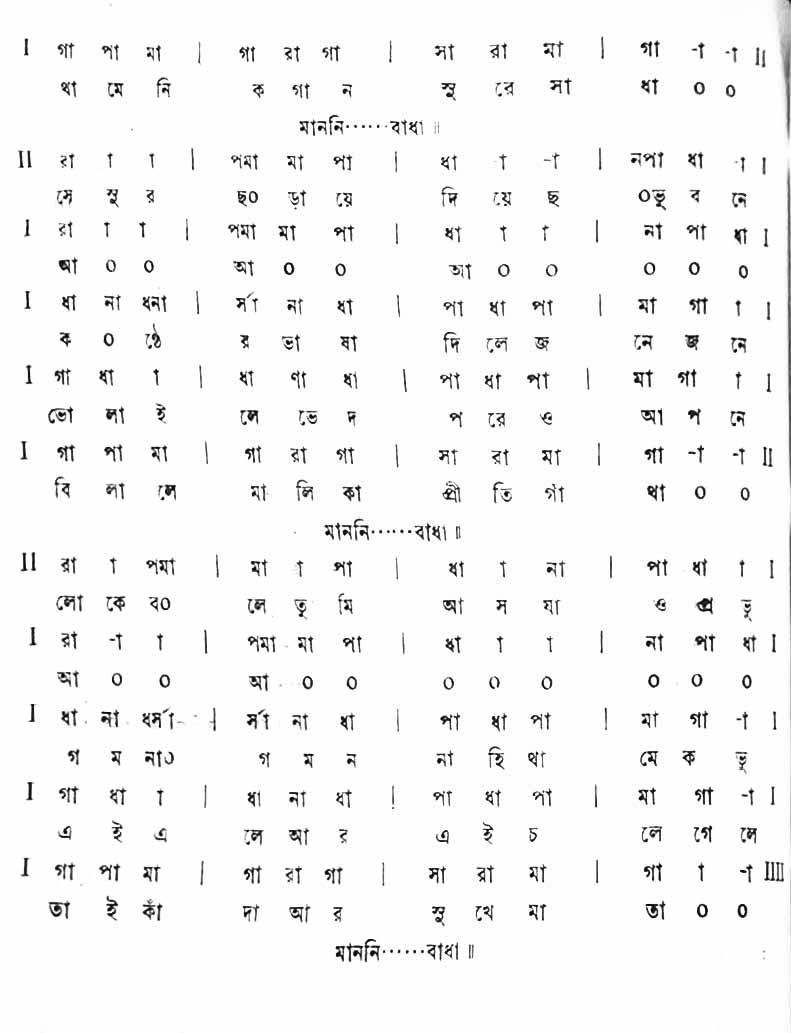 I গা পা মা | গা রা গা | সা রা মা | গা -া -া II
থা মে নি ক গা ন সু রে সা ধা ০ ০
মাননি······বাধা ॥
II রা া া | পমা মা পা | ধা -া -া | নপা ধা -া I
সে সু র ছ০ ড়া য়ে দি য়ে ছ ০ভু ব নে
I রা া া | পমা মা পা | ধা া া | না পা ধা I
আ ০ ০ আ ০ ০ আ ০ ০ ০ ০ ০
I ধা না ধনা | র্সা না ধা | পা ধা পা | মা গা া I
ক ০ ণ্ঠে র ভা ষা দি লে জ নে জ নে
I গা ধা া | ধা ণা ধা | পা ধা পা | মা গা া I
ভো লা ই লে ভে দ প রে ও আ প নে
I গা পা মা | গা রা গা | সা রা মা | গা -া -া II
বি লা লে মা লি কা প্রী তি গাঁ থা ০ ০
মাননি······বাধা ॥
II রা া পমা | মা া পা | ধা া না | পা ধা া I
লো কে ব০ লে তু মি আ স যা ও প্র ভু
I রা -া া | পমা মা পা | ধা া া | না পা ধা I
আ ০ ০ আ ০ ০ ০ ০ ০ ০ ০ ০
I ধা না ধর্সা | র্সা না ধা | পা ধা পা | মা গা -া I
গ ম না০ গ ম ন না হি থা মে ক ভু
I গা ধা া | ধা না ধা | পা ধা পা | মা গা -া I
এ ই এ লে আ র এ ই চ লে গে লে
I গা পা মা | গা রা গা | সা রা মা | গা া -া IIII
তা ই কাঁ দা আ র সু খে মা তা ০ ০
মাননি······বাধা ॥